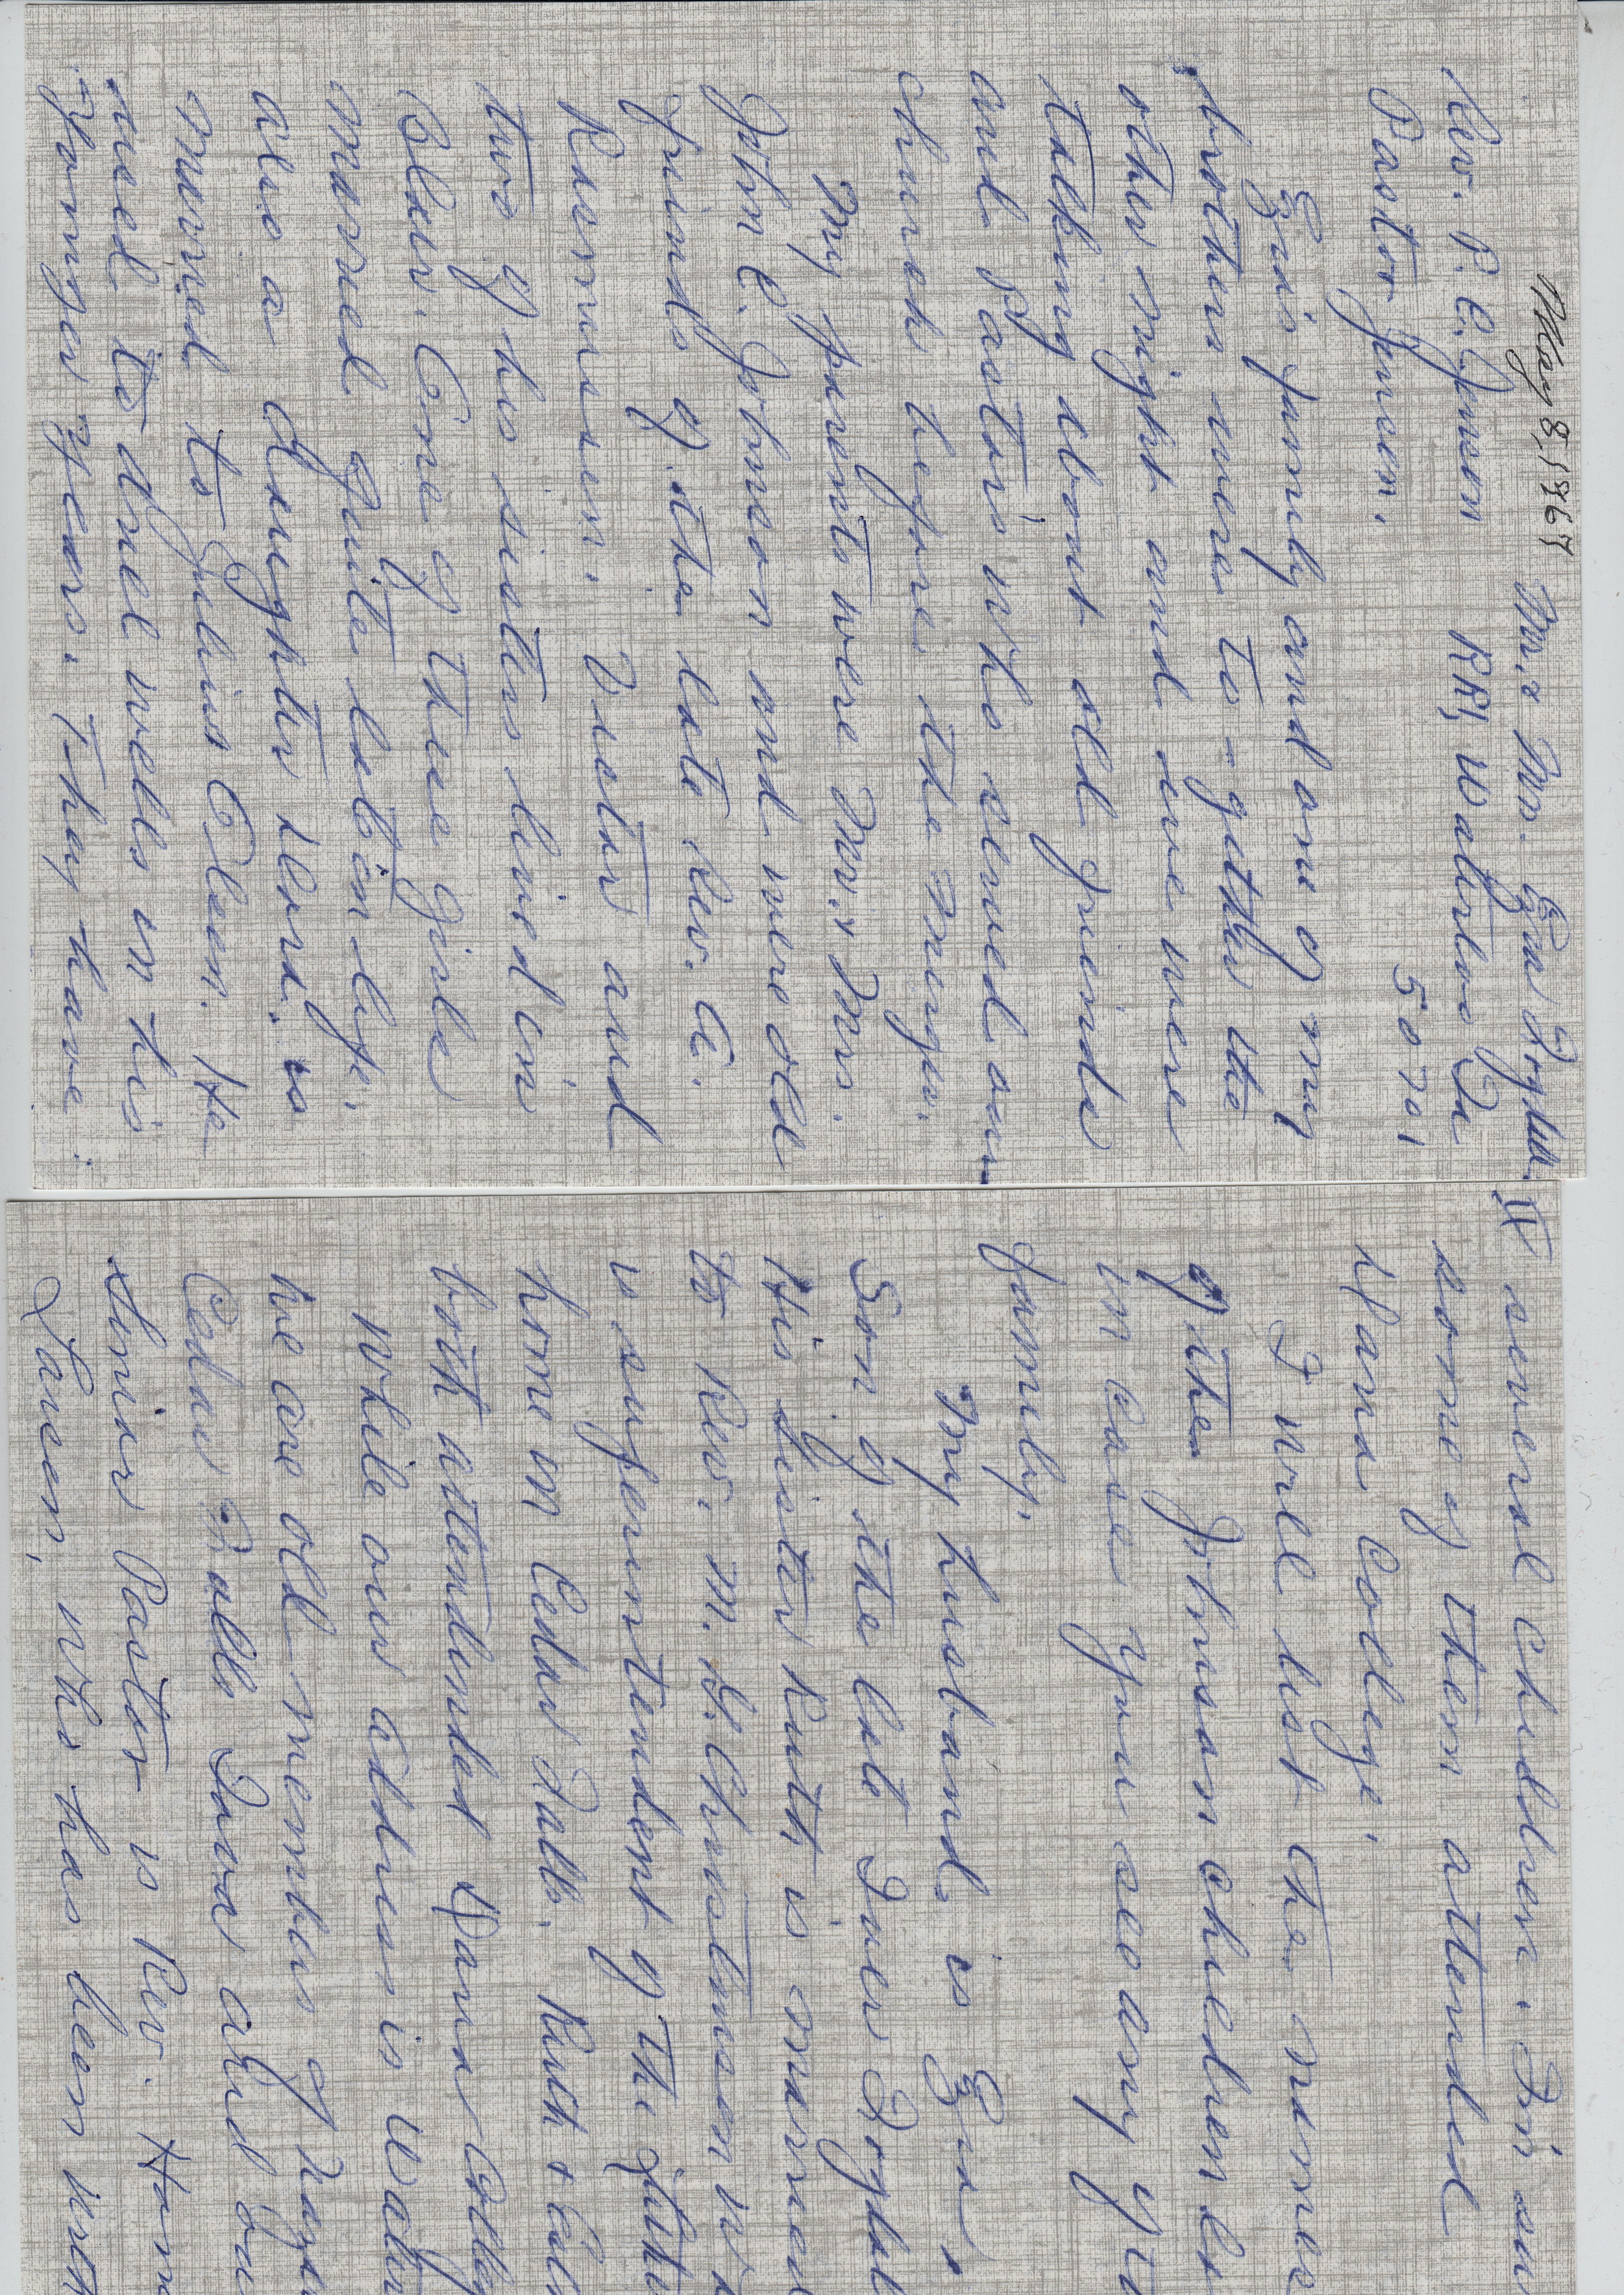 May 8, 1967
Mr. & Mrs. Ezra
Rev. P. C. Jensen RR1, Waterloo Ia
Pastor Jensen, 50701
Ezra's family and one of my
brothers were to-gether the
other night and we were
talking about old friends
and pastors who served our
church before the merger.
My parents were Mr. & Mrs.
John C. Johnson and were old
friends of the late Rev. A.
Rasmussen. Victor and
two of his sisters lived in
Blair. One of the girls
married quite late in life.
also a daughter Alma is
married to Julius Olsen. He
used to drill wells in his
younger years. They have
II several children. I'm sure
some of them attended
Dana College.
I will list the names
of the Johnson children
in case you see any of
family.
My husband, is Ezra,
Son of the late Iner
His sister Ruth is married
to Rev. M. A. Christensen
is superintendent of the
home in Cedar Falls. Ruth &
both attended Dana College
while our address is
we are old members of
Cedar Falls Iowa and
Senior Pastor is Rev.
Larsen, who has been with